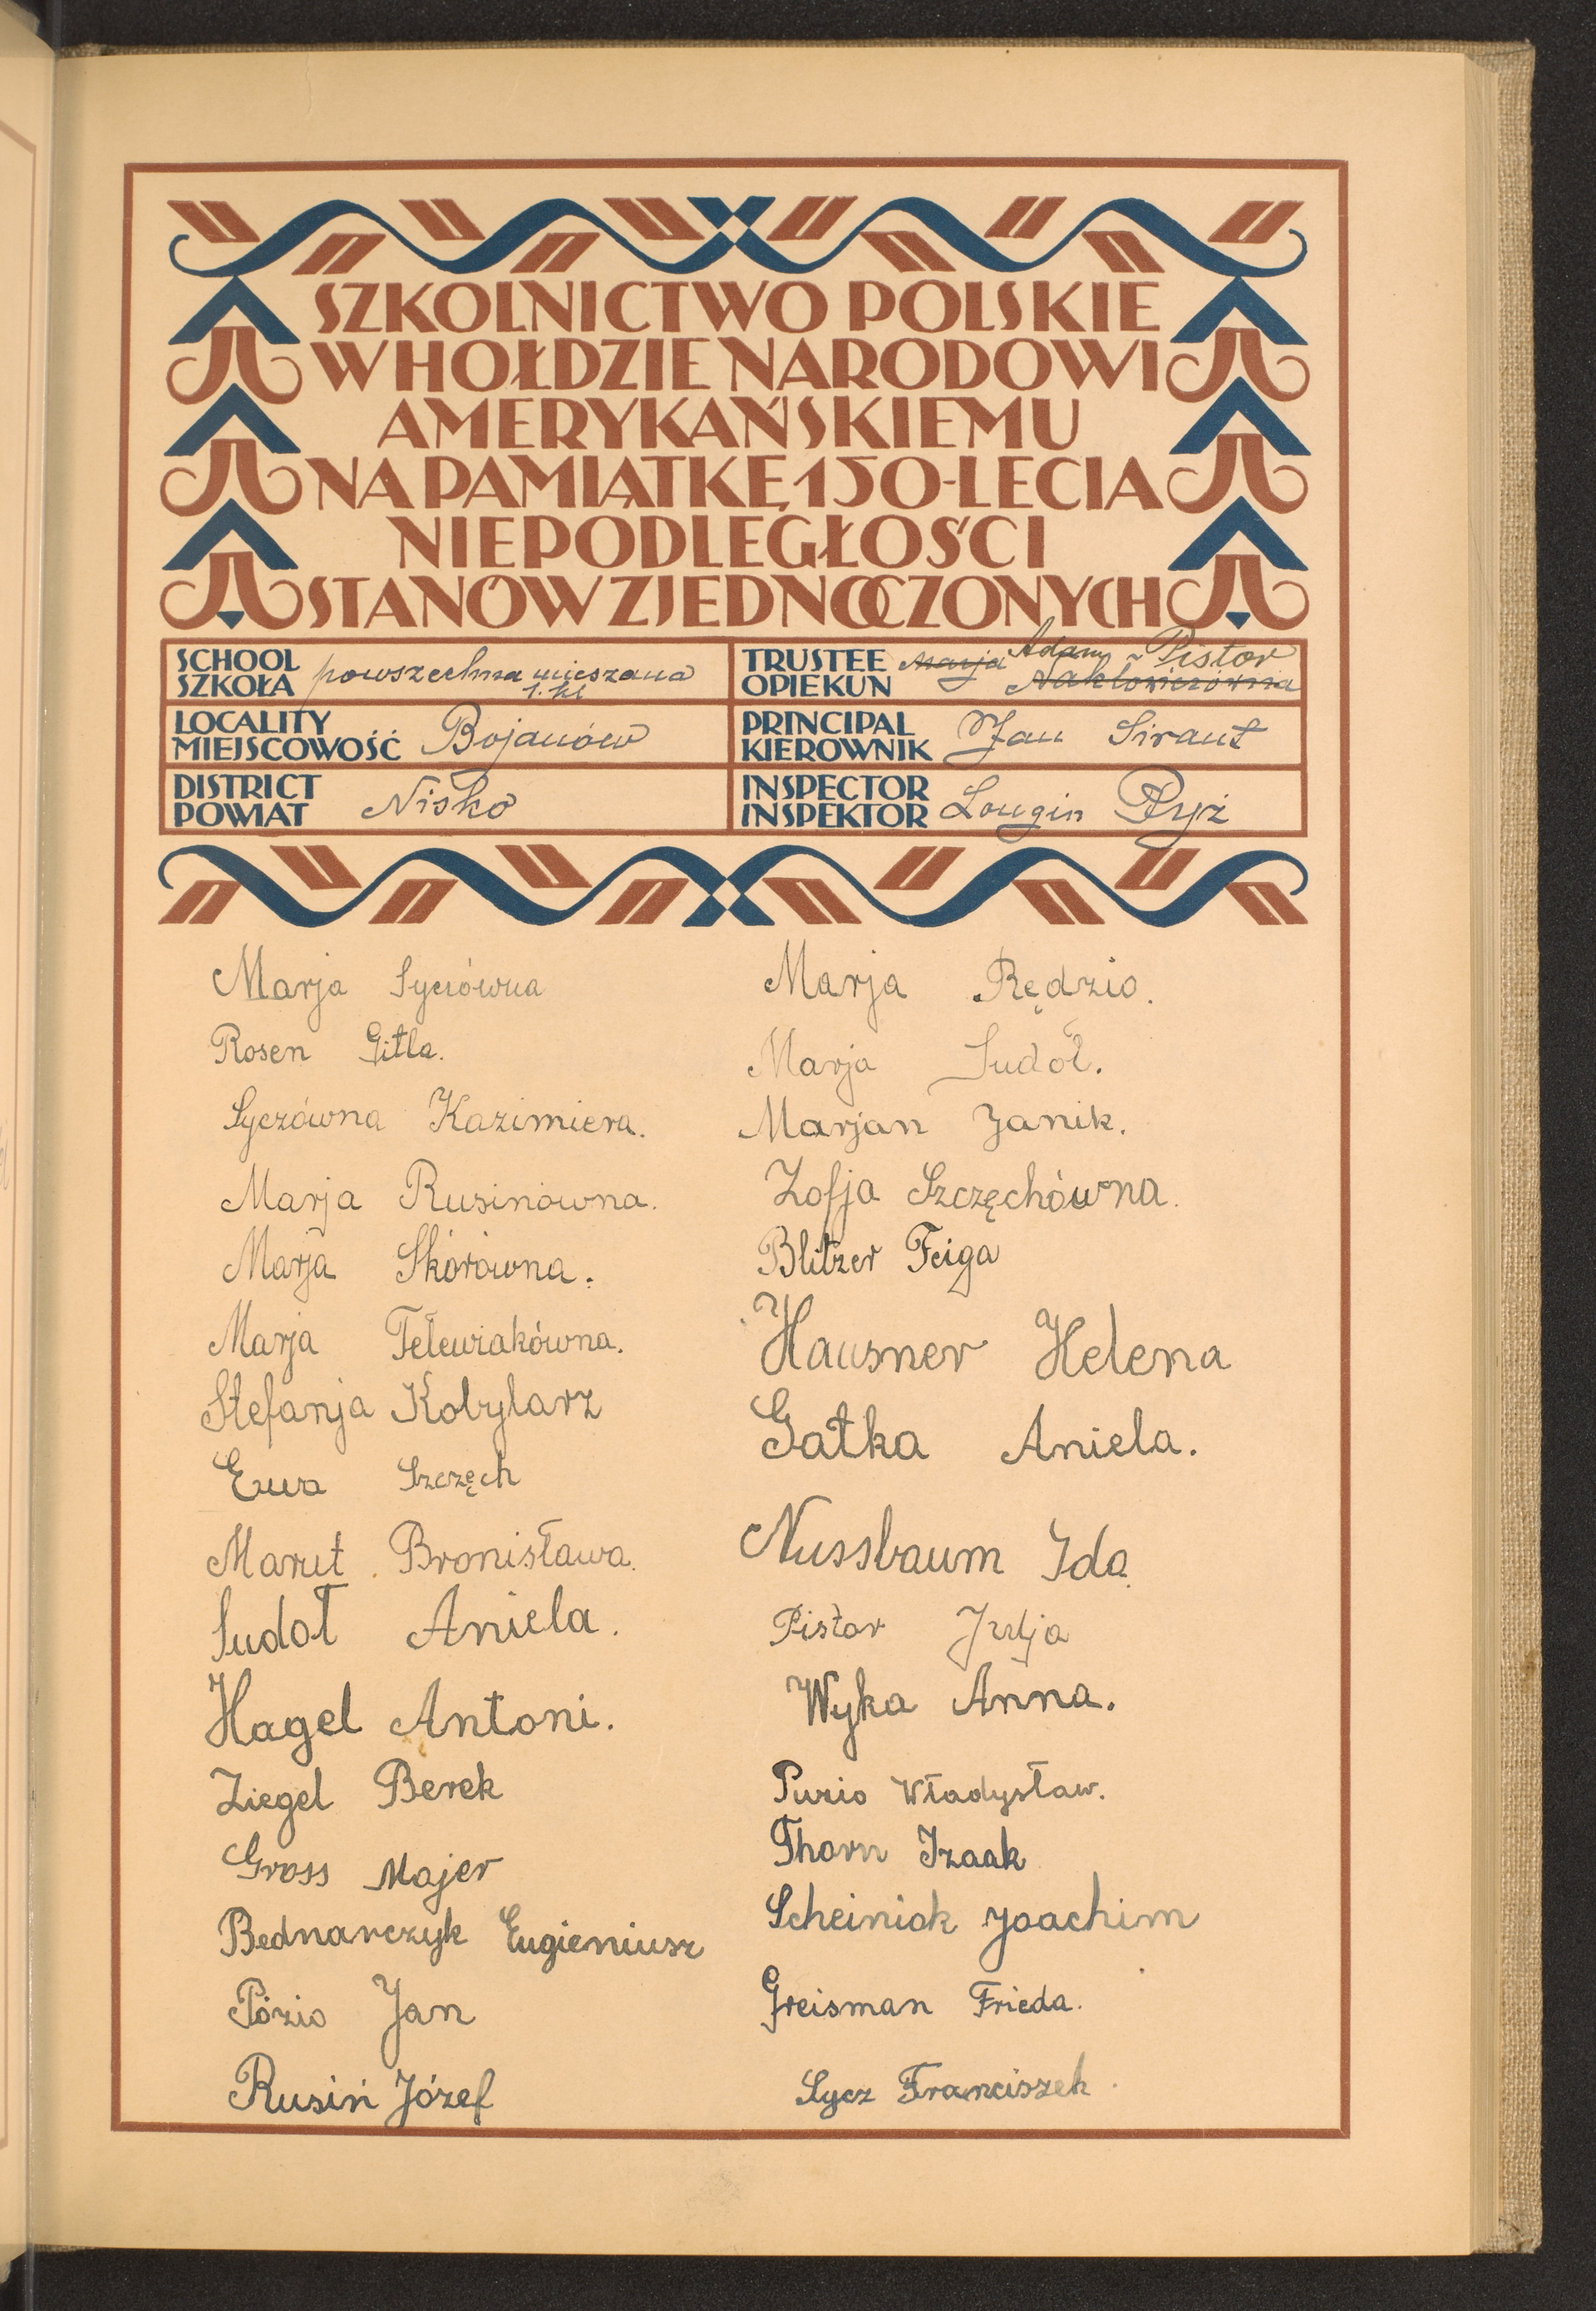 SZKOLNICTWO POLSKIE
W HOŁDZIE NARODOWI
AMERYKAŃSKIEMU
NA PAMIĄTKĘ 150-LECIA
NIEPODLEGŁOŚCI
STANÓW ZJEDNOCZONYCH
SCHOOL
SZKOŁA
powszechna mieszana
1. kl
TRUSTEE
OPIEKUN
Marja Adam Pistor
Nakłowiczówna
LOCALITY
MIEJSCOWOŚĆ
Bojanów
PRINCIPAL
KIEROWNIK
Jan Sirant
DISTRICT
POWIAT
Nisko
INSPECTOR
INSPEKTOR
Longin Ryż
Marja Syczówna
Rosen Gitla.
Syczówna Kazimiera.
Marja Rusinówna.
Marja Skórówna.
Marja Felewiakówna.
Stefanja Kobylarz
Ewa Szczęch
Marut Bronisława.
Sudoł Aniela.
Hagel Antoni.
Ziegel Berek
Gross Majer
Bednarczyk Eugieniusz
Pózio Jan
Rusin Józef
Marja Rędzio.
Marja Sudoł.
Marjan Janik.
Zofja Szczęchówna.
Blitzer Feiga
Hausner Helena
Gatka Aniela.
Nussbaum Ida.
Pistor Julja
Wyka Anna.
Puzio Władysław.
Thorn Izaak
Scheiniok Joachim
Greisman Frieda.
Sycz Franciszek.